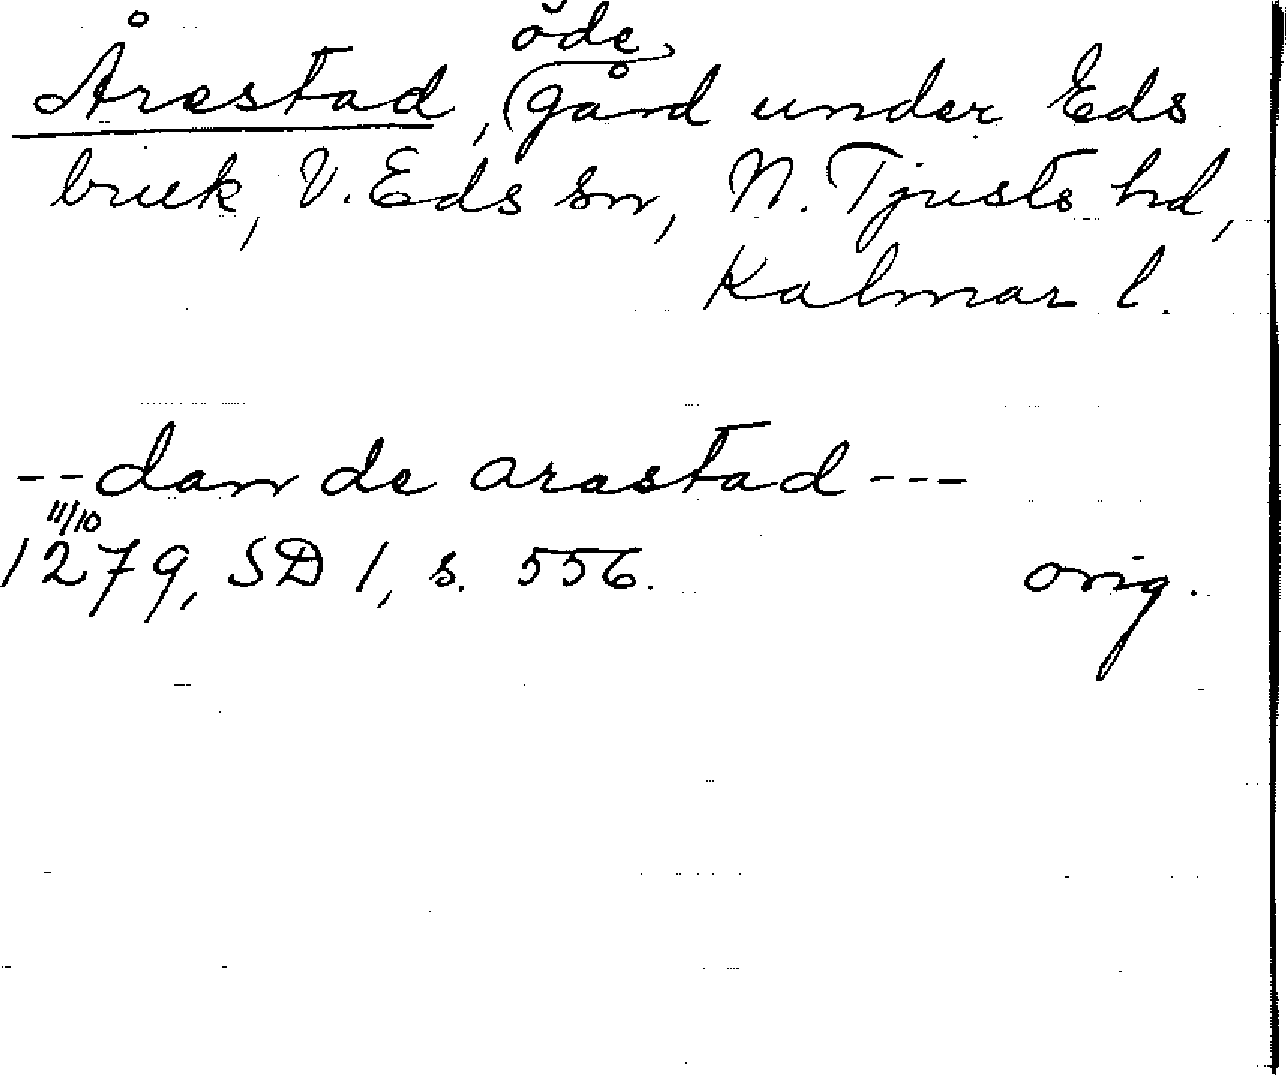 Årestad, ödegård under Eds
bruk, V. Eds sn, N. Tjusts hd,
Kalmar l.
--dan de arastad---
11/10
1279, SD 1, s. 556. orig.